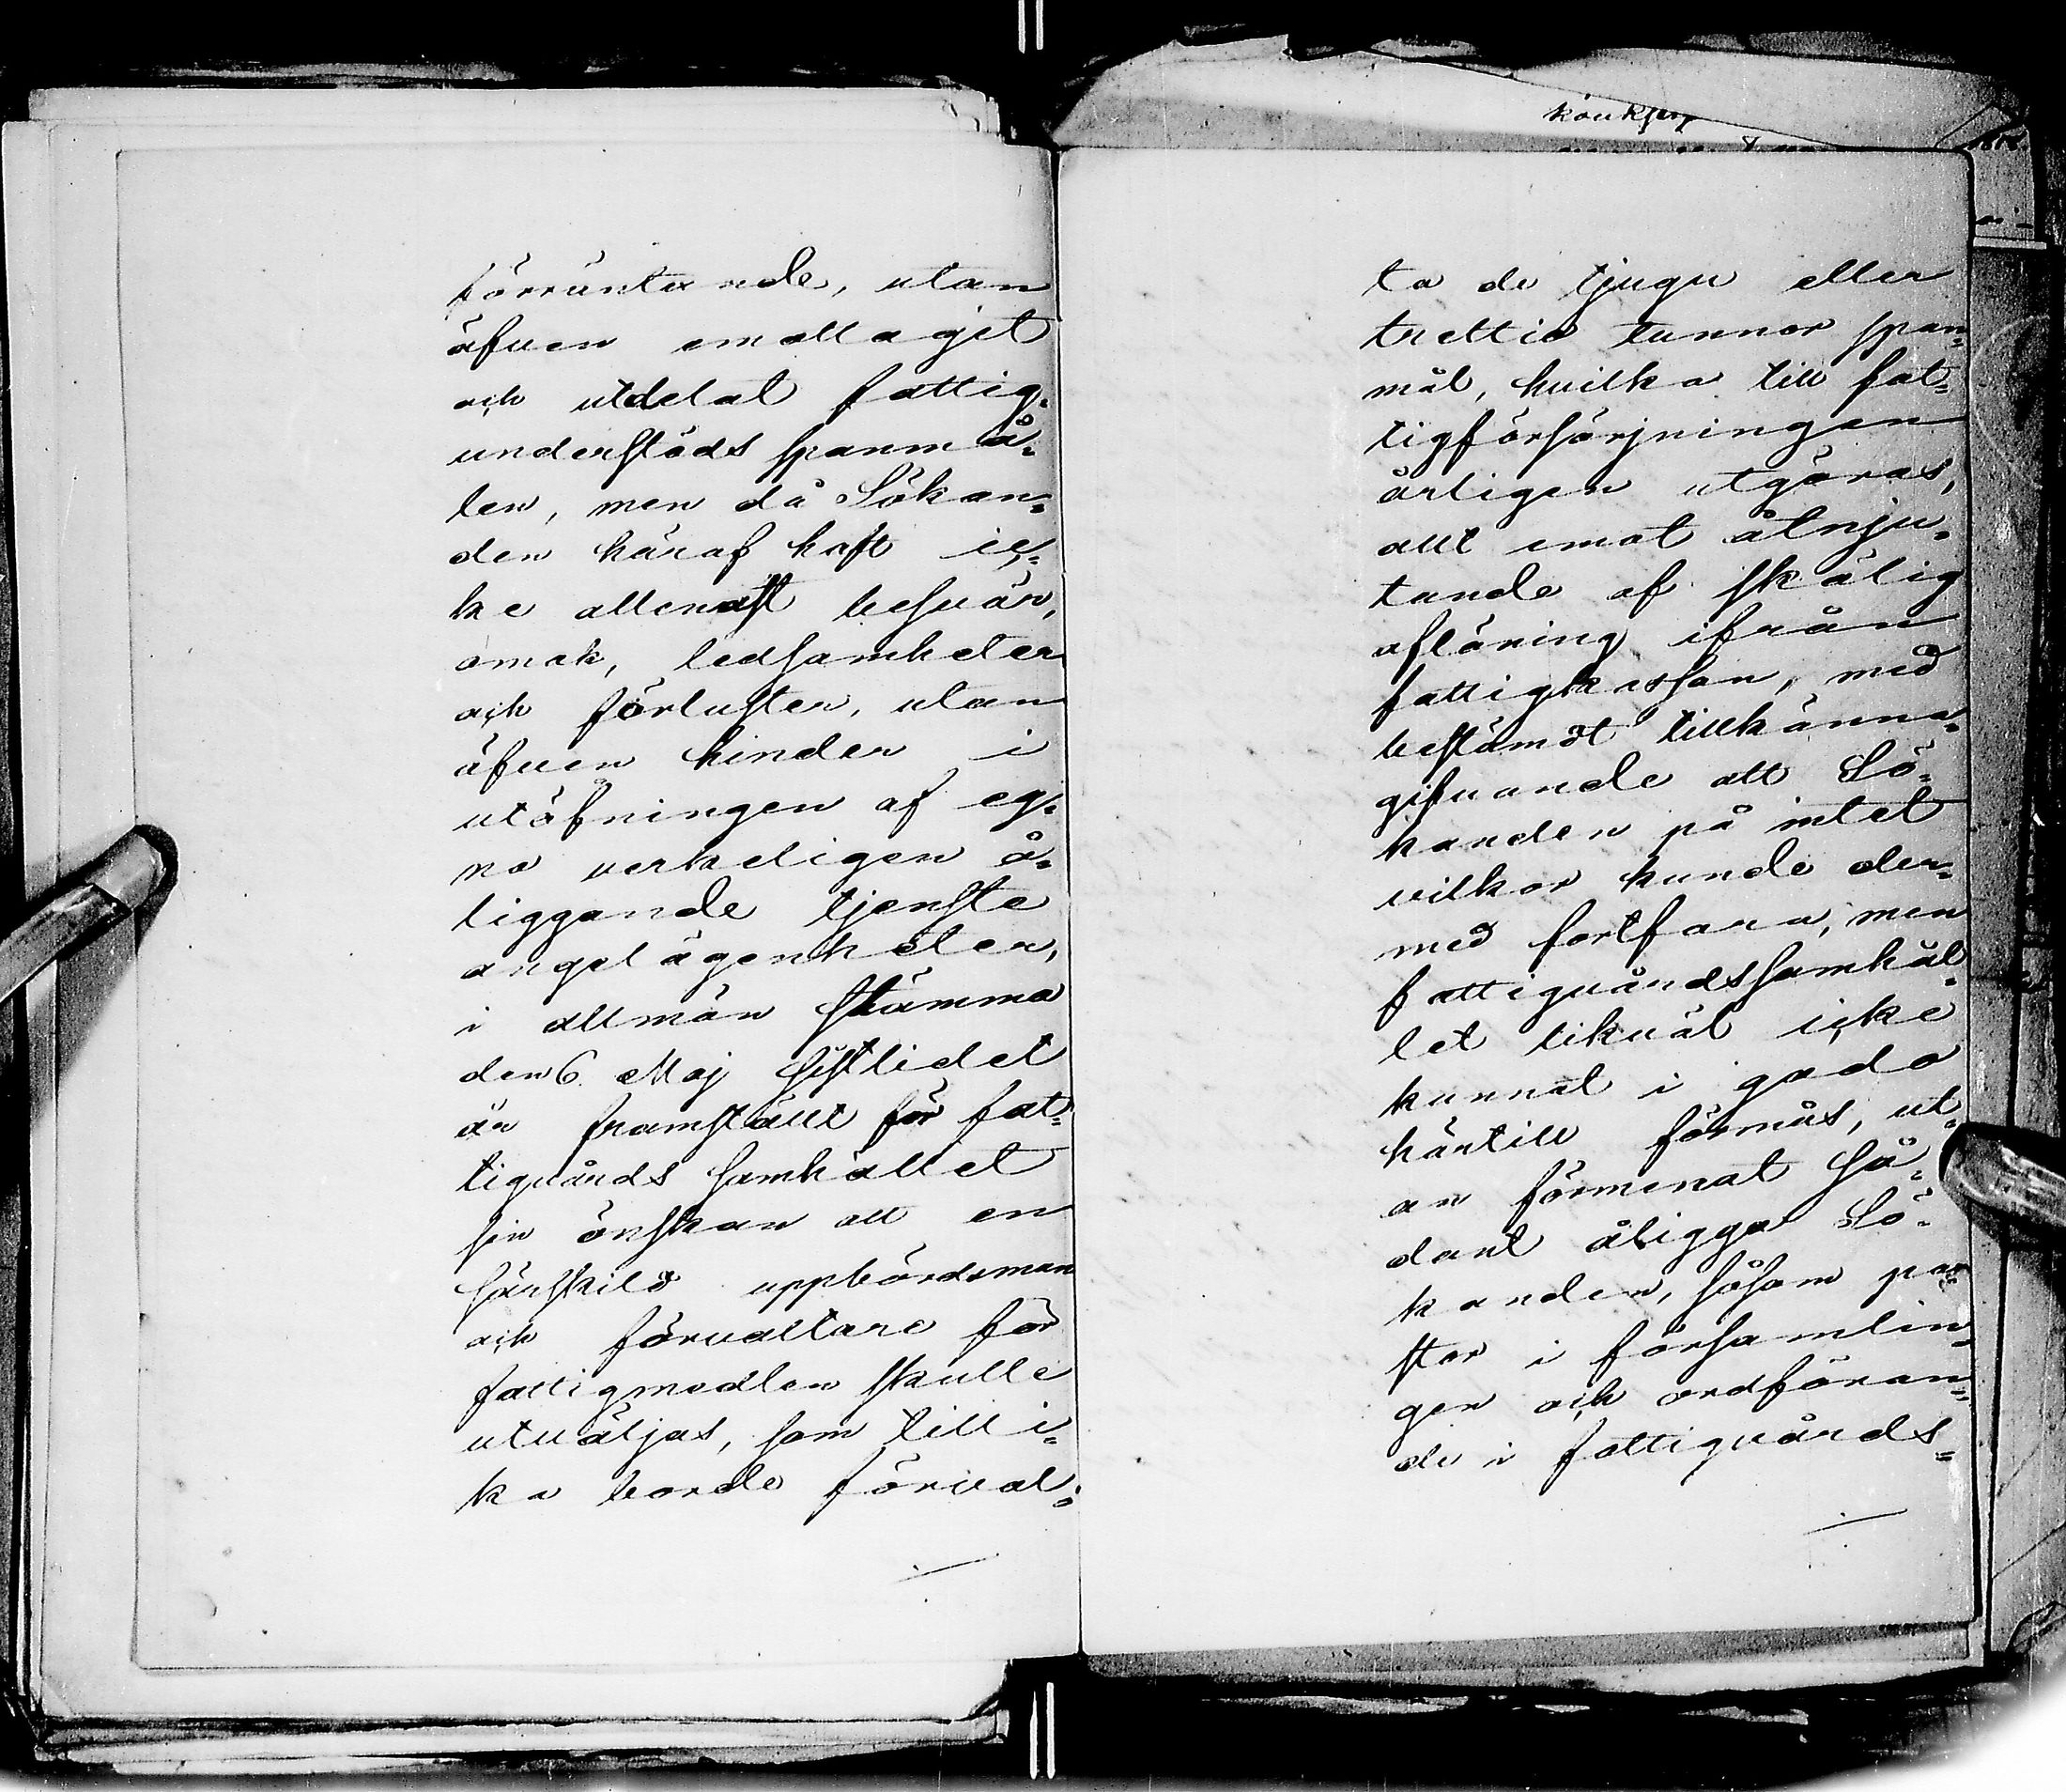 förräntande, utan
äfven emottagit
och utdelat fattig=
understöds spanmå=
len, men då Sökan=
den häraf haft ic=
ke allenast besvär,
omak, ledsamheter
och förluster, utan
äfven hinder i
utöfningen af eg=
na verkeligen å=
liggande tjenste
angelägenheter,
i allmän stämma
den 6 Maj sistlidet
år framstäldt för fat=
tigvårds samhället
sin önskan att en
särskild uppbördsman
och förvaltare för
fattigmedlen skulle
utväljas, som tilli=
ka borde förval=
ta de tjugu eller
trettio tunnor span=
mål, hvilka till fat=
tigförsörjningen
årligen utgöras,
allt emot åtnju=
tande af skälig
aflöning ifrån
fattigkassan, med
bestämdt tillkänna=
gifvande att Sö=
kanden på intet
vilkor kunde der=
med fortfara, men
fattigvårdssamhäl=
let likväl icke
kunnat i godo
härtill förmås, ut=
an förmenat så=
dant åligga Sö=
kanden, såsom pa=
stor i församlin=
gen och ordföran=
de i fattigvårds=